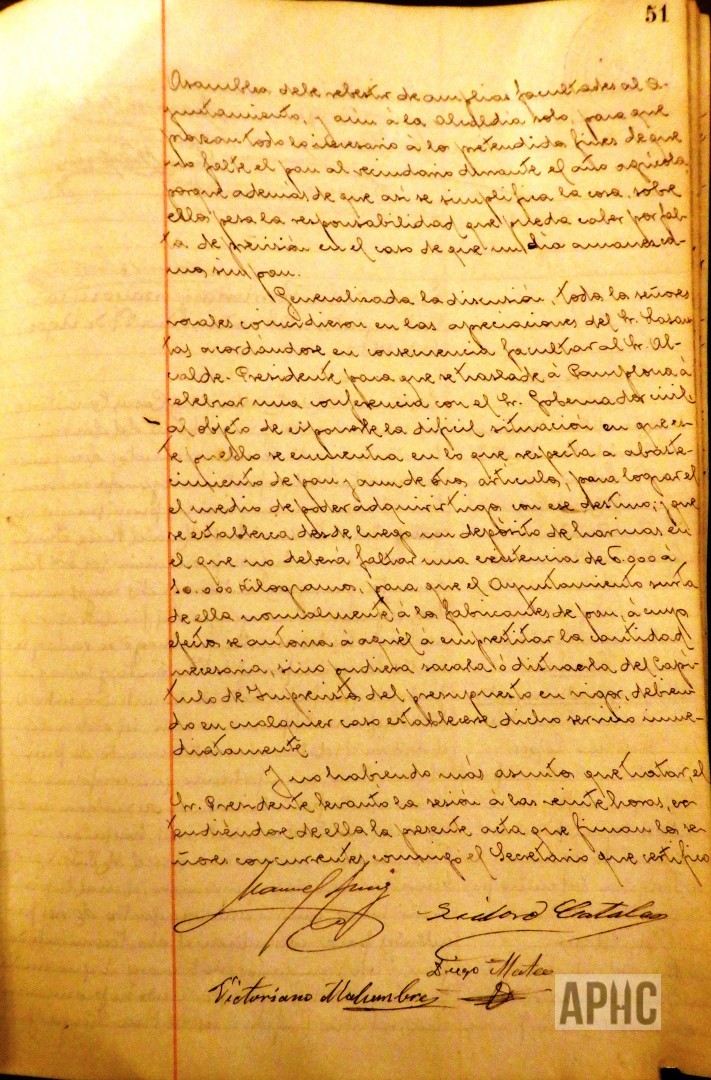 51
Asamblea debe rebestir de amplias facultades al A-
yuntamiento, y aún á la Alcaldia solo, para que
provean todo lo necesario á los pretendidos fines de que
no falte el pan al vecindario durante el año agrícola,
porque ademas de que así se simplifica la cosa, sobre
ellos pesa la responsabilidad que pueda caber por fal-
ta de previsión en el caso de que un dia amanezca-
mos sin pan.
Generalizada la discusión, todos los señores
vocales coincidieron en las apreciaciones del Sr.
acordándose en consecuencia facultar al Sr. Al-
calde-Presidente para que se traslade á Pamplona á
celebrar una conferencia con el Sr. Gobernador civil
al objeto de exponerle la dificil situación en que es-
te pueblo se encuentra en lo que respecta a abaste-
cimiento de pan y aun de otros artículos, para lograr el
el medio de poder adquirir trigos con ese destino; y que
se establezca desde luego un depósito de harinas en
el que no deberá faltar una existencia de 6.000 á
10.000 Kilogramos, para que el Ayuntamiento surta
de ella normalmente á los fabricantes de pan, á cuyo
efecto se autoriza á aquél a emprestitar la cantidad
necesaria, si no pudiera sacarla ó distraerla del Capí-
tulo de Imprevistos del presupuesto en vigor, debien-
do en cualquier caso establecerse dicho servicio inme-
diatamente.
Y no habiendo más asuntos que tratar, el
Sr. Presidente levantó la sesión á las veinte horas, ex-
tendiéndose de ella la presente acta que firman los se-
ñores concurrentes, conmigo el Secretario que certifico
Manuel
Isidoro Catalan
Diego Mateo
Victoriano Malumbres
APHC